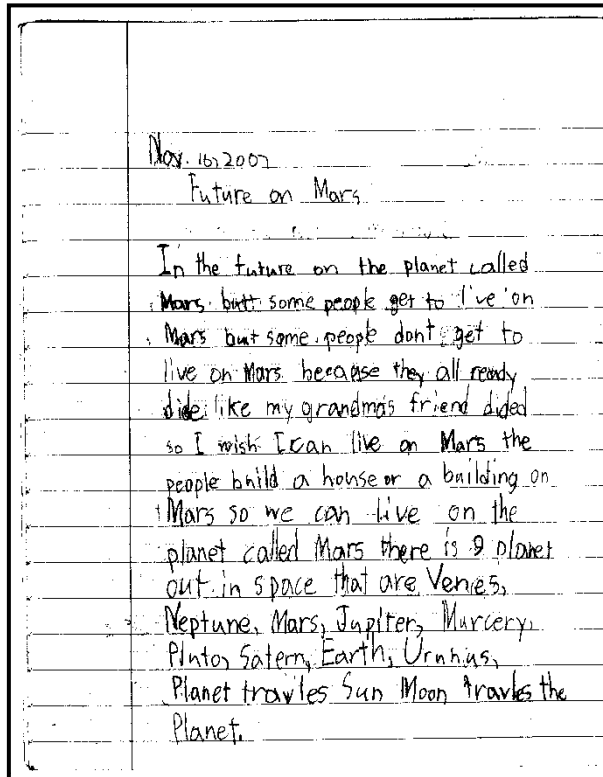 Nov. 16, 2007
Future on Mars
In the future on the planet called
Mars butt some people get to live on
Mars but some people dont get to
live on Mars because they all ready
dide like my grandmas friend dided
so I wish I can live on Mars the
people build a house or a building on
Mars so we can live on the
planet called Mars there is 9 planet
out in space that are Venies,
Neptune, Mars, Jupiter, Murcery,
Pluto, Satern, Earth, Urnnus,
Planet travles Sun Moon travles the
Planet.